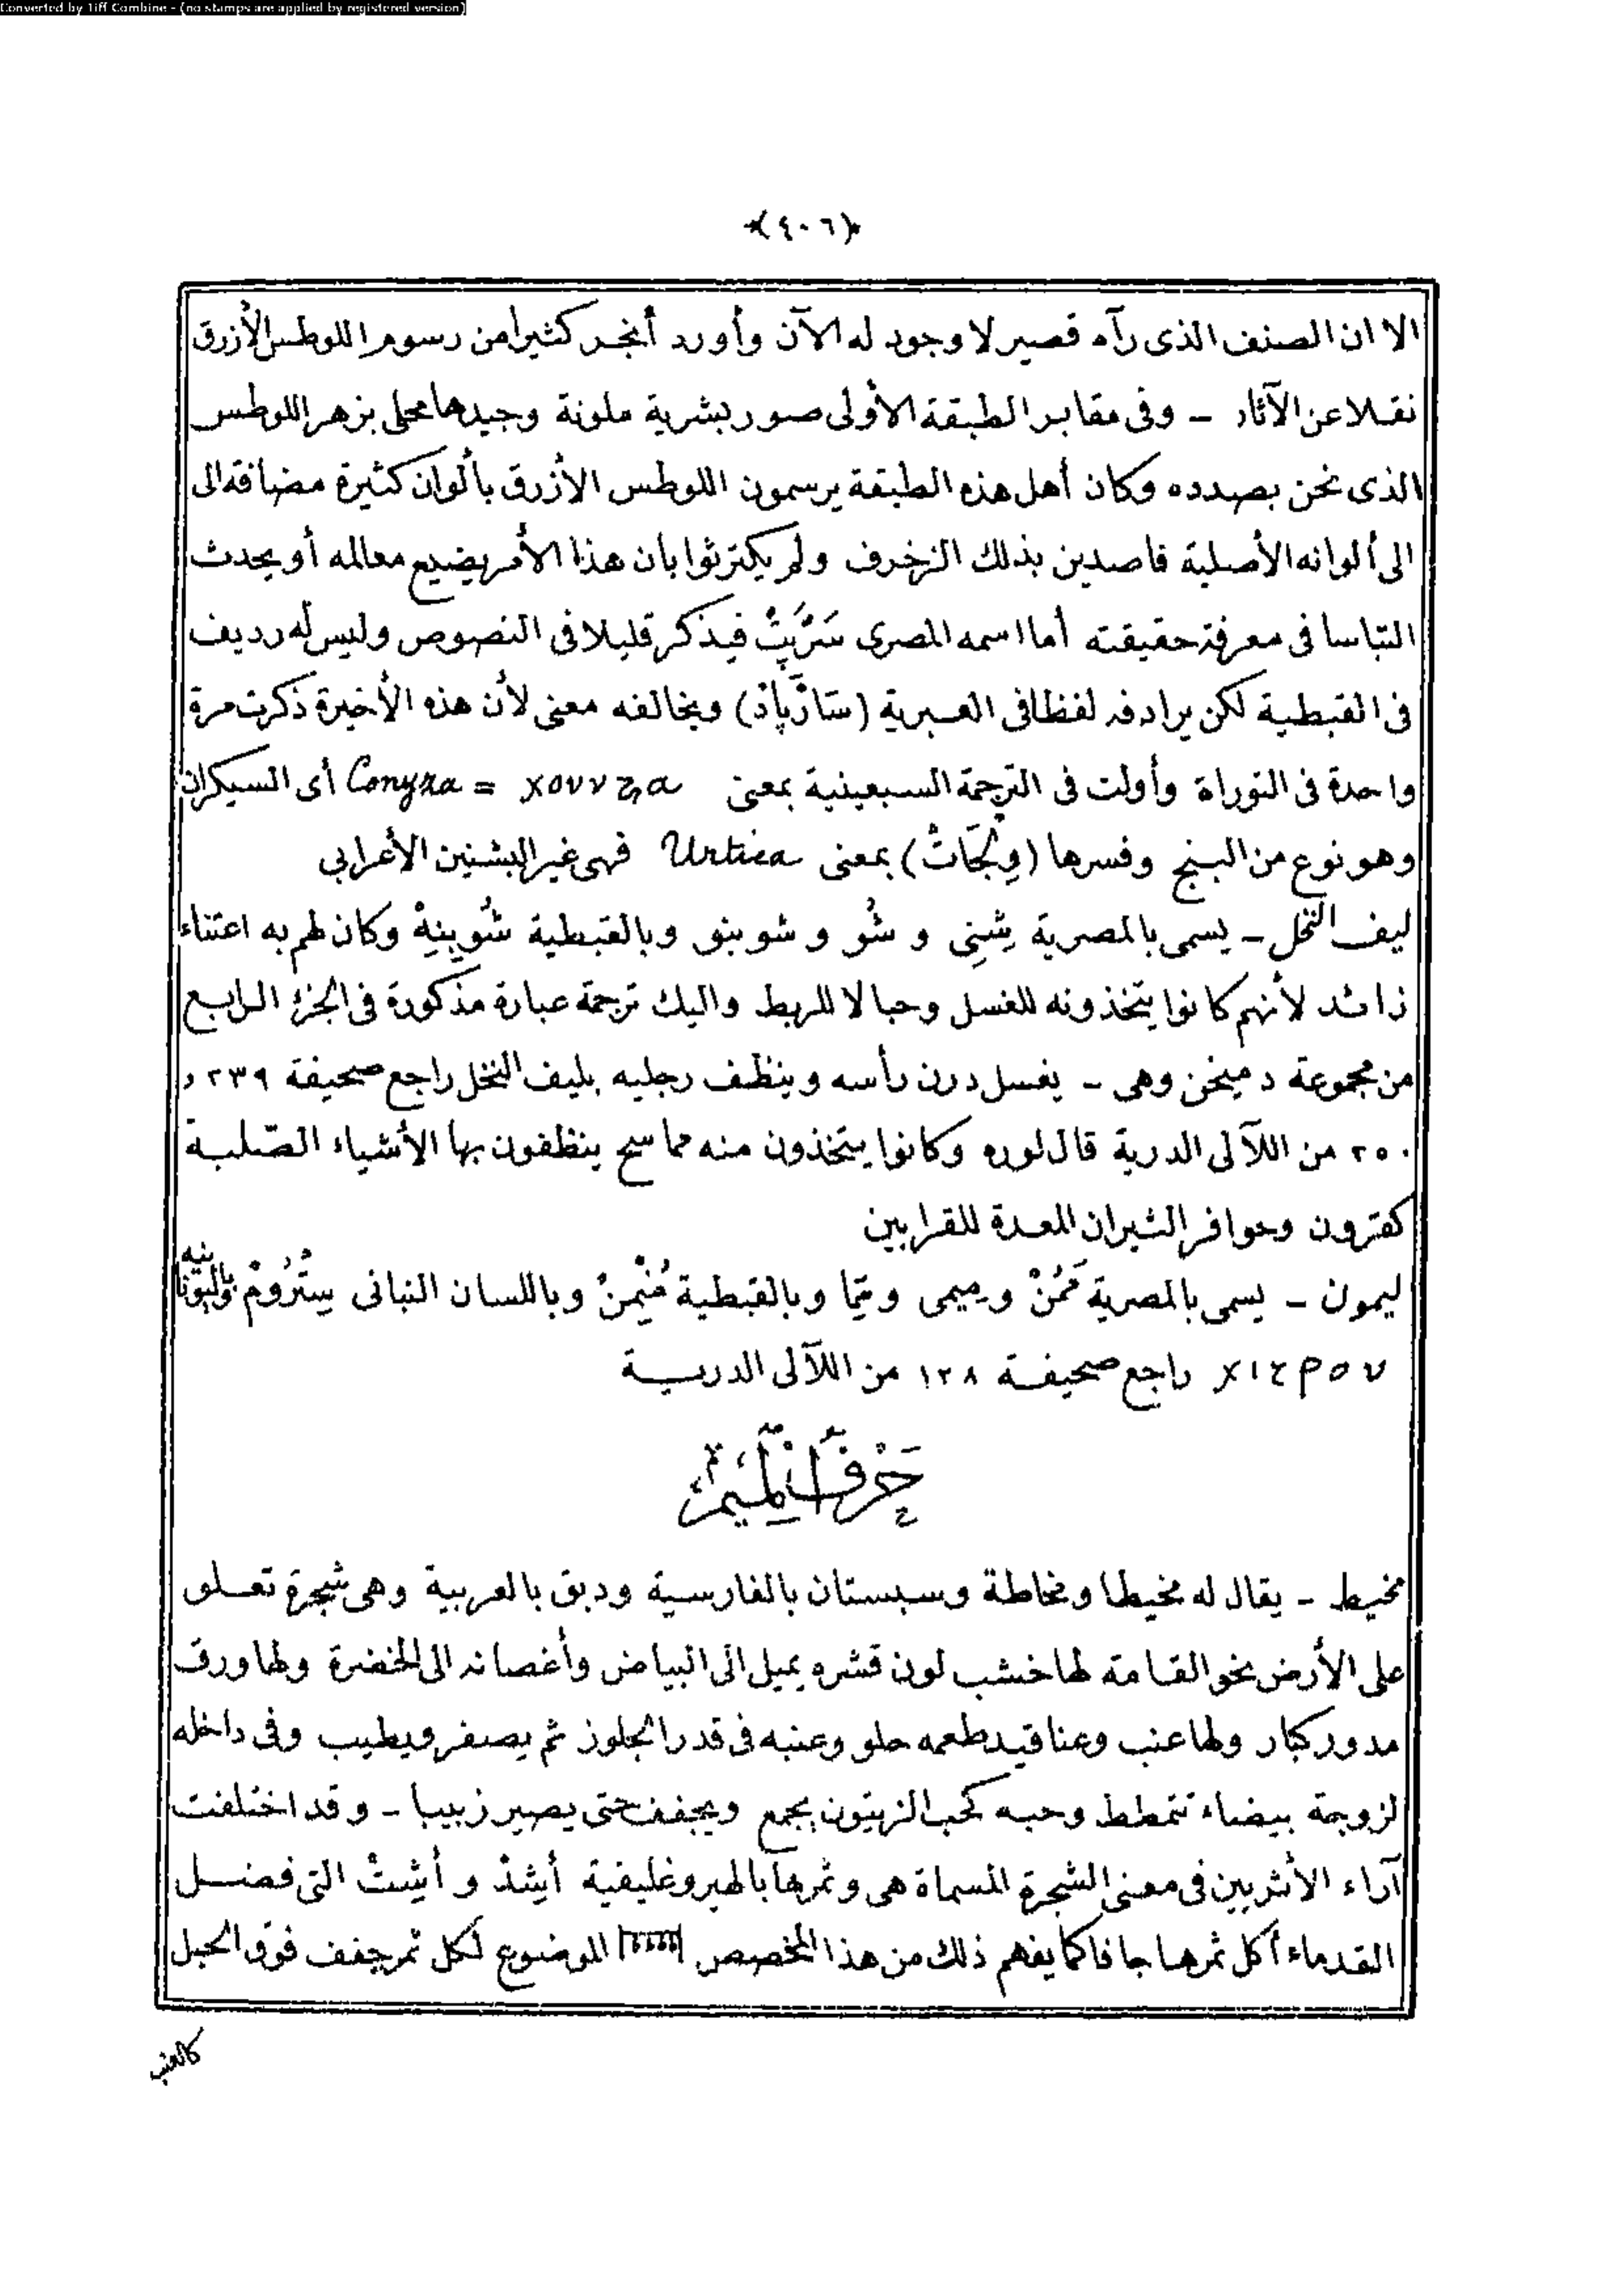 Converted by Tiff Combine - (no stamps are applied by registered version)
﴿٤٠٦﴾
الا ان الصنف الذى رآه قصير لا وجود له الآن وأورد أنجر كثيرا من رسوم اللوطس الأزرق
نقلا عن الآثار – وفى مقابر الطبقة الأولى صور بشرية ملونة وجيدها محلى بزهر اللوطس
الذى نحن بصدده وكان أهل هذه الطبقة يرسمون اللوطس الأزرق بألوان كثيرة مضافة الى
الى ألوانه الأصلية قاصدين بذلك الزخرف ولم يكترثوا بان هذا الأمر يضيع معالمه أو يحدث
التباسا فى معرفة حقيقته أما اسمه المصرى سَرْپِتْ فيذكر قليلا فى النصوص وليس له رديف
فى القبطية لكن يرادفه لفظا فى العبرية (سَارْپَادْ) ويخالفه معنى لأن هذه الأخيرة ذكرت مرة
واحدة فى التوراة وأولت فى الترجمة السبعينية بمعنى Conyza = χονυζα أى السيكران
وهو نوع من البنج وفسرها (وِلْجَاتْ) بمعنى Urtica فهى غير البشنين الأعرابي
ليف النخل – يسمى بالمصرية شِنِى و شُو و شوبنو وبالقبطية شُوبِنِهْ وكان لهم به اعتناء
زائد لأنهم كانوا يتخذونه للغسل وحبالا للربط واليك ترجمة عبارة مذكورة فى الجزء الرابع
من مجموعة دميخن وهى – يغسل درن رأسه وينظف رجليه بليف النخل راجع صحيفة ٢٣٩ و
٢٥٠ من اللآلى الدرية قال لوره وكانوا يتخذون منه مماسح ينظفون بها الأشياء الصلبة
كقرون وحوافر الثيران المعدة للقرابين
ليمون – يسمى بالمصرية مَمُنْ وميمى و بَمَا وبالقبطية مُنْمِنْ وباللسان النباتى سِتْرُومْ وباليونانيه
χιτρον راجع صحيفة ١٢٨ من اللآلى الدرية
حَرْفُ الْمِيمِ
مخيط – يقال له مخيطا ومخاطة وسبستان بالفارسية ودبق بالعربية وهى شجرة تعلو
على الأرض نحو القامة لها خشب لون قشره يميل الى البياض وأغصانه الى الخضرة ولها ورق
مدور كبار ولها عنب وعناقيد طعمه حلو وعنبه فى قدر الجلوز ثم يصفر ويطيب وفى داخله
لزوجة بيضاء تتمطط وحبه كحب الزيتون يجمع ويجفف حتى يصير زبيبا – وقد اختلفت
آراء الأثريين فى معنى الشجرة المسماة هى وثمرها بالهيروغليفية أَشِدْ و أَشِتْ التى فضل
القدماء أكل ثمرها جافا كما يفهم ذلك من هذا المخصص الموضوع لكل ثمر جفف فوق الحبل
كالعنب